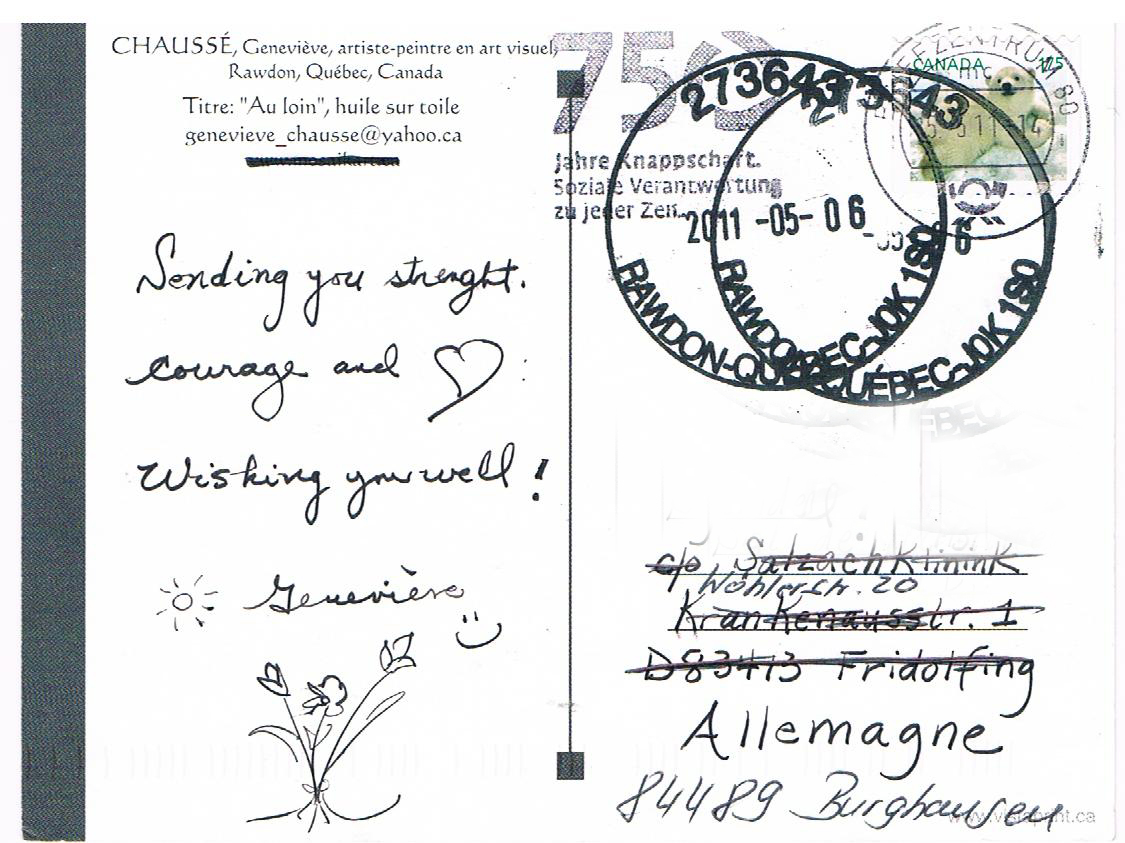 CHAUSSÉ, Geneviève, artiste-peintre en art visuel,
Rawdon, Québec, Canada
Titre: "Au loin", huile sur toile
genevieve_chausse@yahoo.ca
Sending you strenght.
courage and
Wishing you well !
Geneviève
75
Jahre Knappschaft.
Soziale Verantwortung
zu jeder Zeit.
CANADA 175
273643
273 43
2011 -05- 06
6
RAWDON-QUÉBEC-J0K 1S0
RAWDON-QUÉBEC-J0K 1S0
c/o Salzachklinink
Wöhlerstr. 20
Krankenausstr. 1
D83413 Fridolfing
Allemagne
84489 Burghausen
www.vistaprint.ca